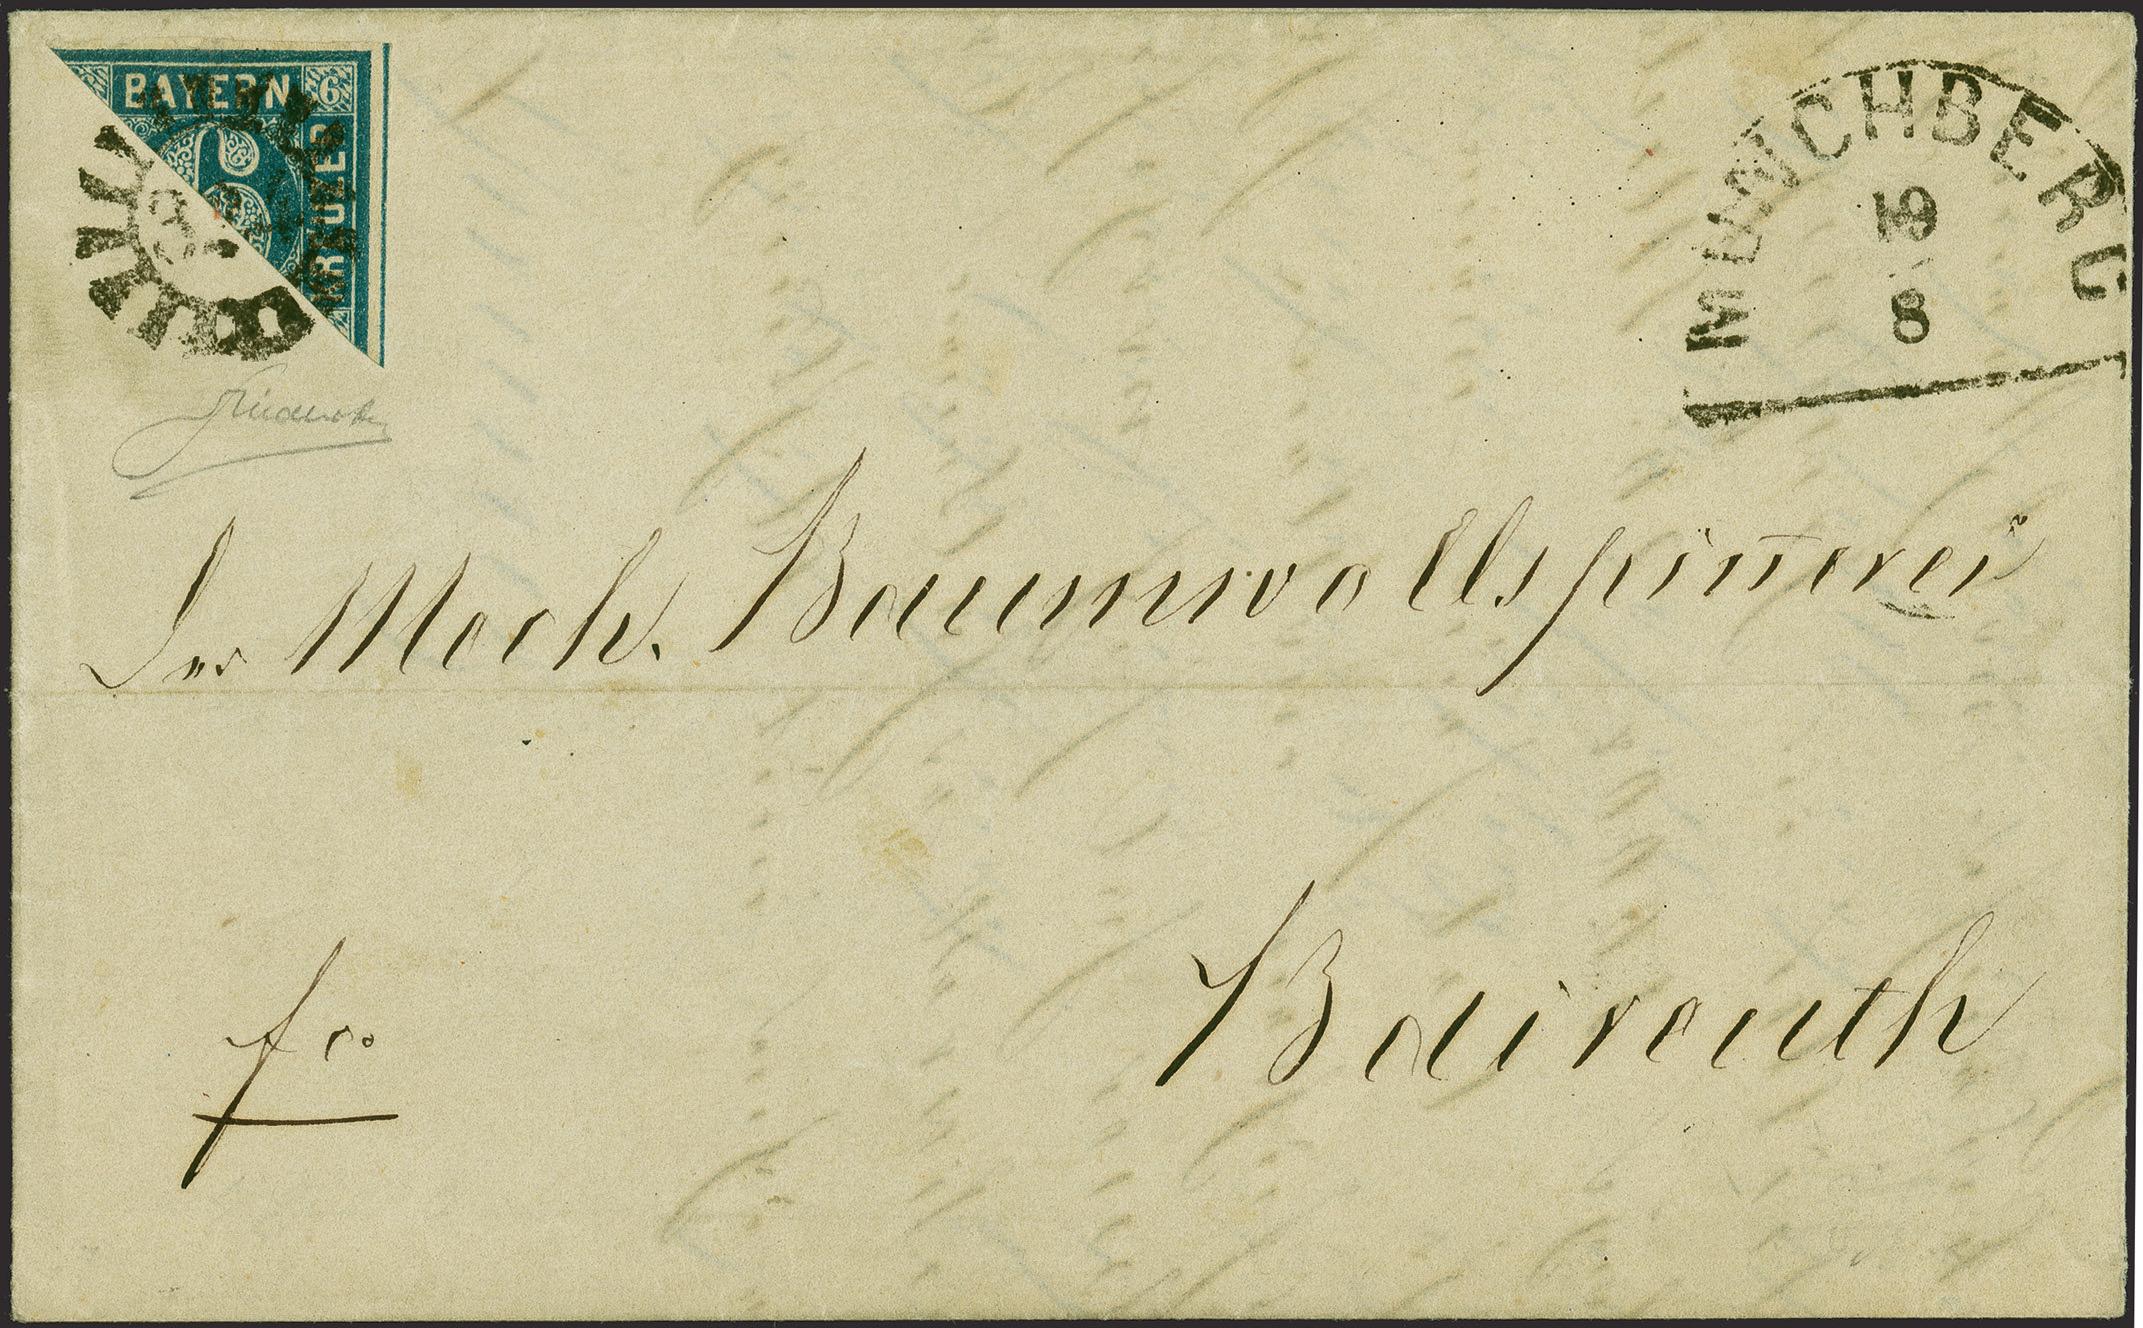 BAYERN 6
KREUZER
MÜNCHBERG
19
8
Der Mech. Baumwollspinnerei
fco
Baireuth